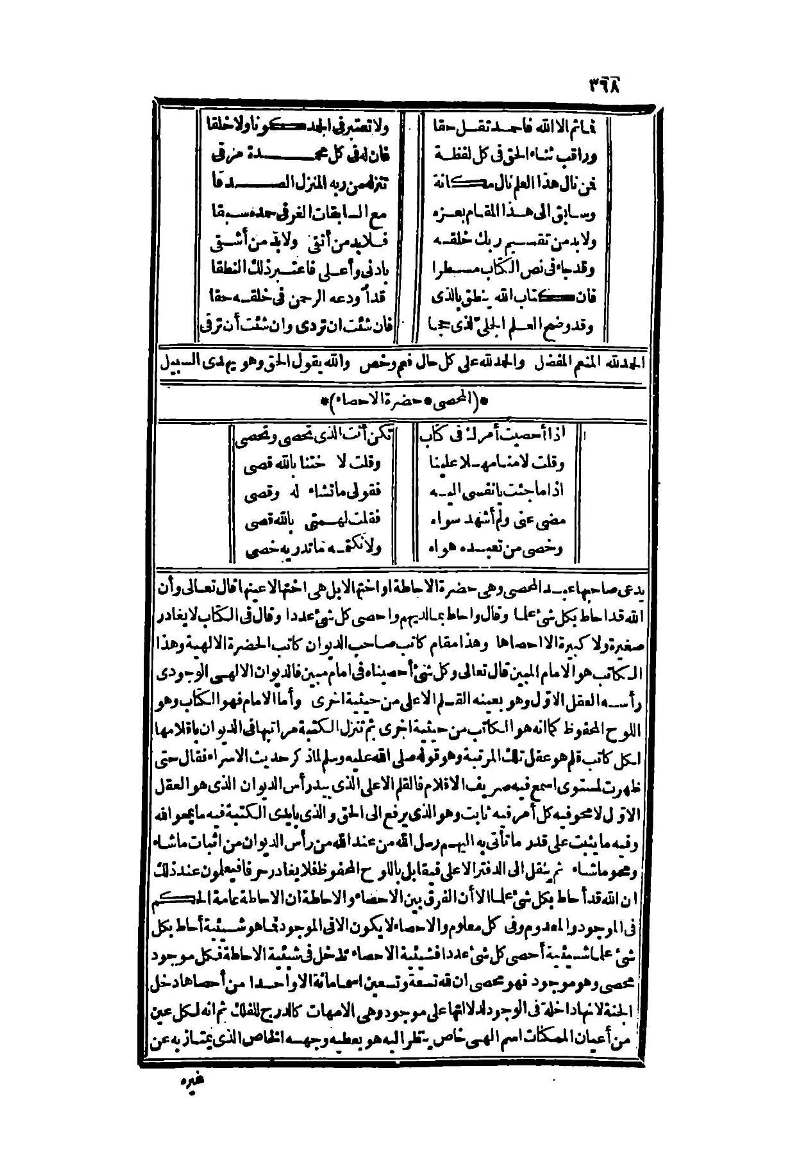 ٣٦٨
فما ثم الا الله فاحمد تقل حقا ولا تعتبر في الحمد كونا ولا خلقا
وراقب ثناء الحق في كل لفظة فان له في كل محمدة مرقى
فمن نال هذا العلم نال مكانة تنزله من ربه المنزل الصدقا
وسابق الى هذا المقام بعزه مع السابقات الغر في حمده سبقا
ولابد من تقسيم ربك خلقه فلابد من أتقى ولابد من أشقى
وقد جاء في نص الكتاب مسطرا بأدنى وأعلى فاعتبر ذلك النطقا
فان كتاب الله ينطق بالذى قد أودعه الرحمن في خلقه حقا
وقد وضح العلم الجلى لذى حجا فان شئت ان تردى وان شئت أن ترقى
الحمد لله المنعم المفضل والحمد لله على كل حال فعم وخص والله يقول الحق وهو يهدى السبيل
*(المحصى * حضرة الاحصاء)*
اذا أحصيت أمرك في كتاب تكن أنت الذى تحصى وتحصى
وقلت لا منامهـ لا علينا وقلت لا ختنا بالله قصى
اذا ما جئت يا نفسى اليه فقولى ما تشاء له وقصى
مضى عنى ولم أشهد سواه فقلت لهمتى بالله قصى
وخصى من تعبده هواه ولا تكتمه ما تدريه خصى
يدعى صاحبها عبد المحصى وهى حضرة الاحاطة او اختها لا بل هى اختها لا عينها قال تعالى وأن
الله قد احاط بكل شئ علما وقال واحاط بما لديهم واحصى كل شئ عددا وقال في الكتاب لا يغادر
صغيرة ولا كبيرة الا احصاها وهذا مقام كاتب صاحب الديوان كاتب الحضرة الالهية وهذا
الكاتب هو الامام المبين قال تعالى وكل شئ أحصيناه في امام مبين فالديوان الالهى الوجودى
رأسه العقل الاول وهو بعينه القلم الاعلى من حيثية اخرى وأما الامام فهو الكتاب وهو
اللوح المحفوظ كما انه هو الكاتب من حيثية اخرى ثم تنزل الكتبة مراتبها في الديوان باقلامها
لكل كاتب قلم هو عقل تلك المرتبة وهو قوله صلى الله عليه وسلم لما ذكر حديث الاسراء فقال حتى
ظهرت لمستوى اسمع فيه صريف الاقلام فالقلم الاعلى الذى بيد رأس الديوان الذى هو العقل
الاول لا محو فيه كل أمر فيه ثابت وهو الذى يرفع الى الحق والذى بايدى الكتبة فيه ما يمحو الله
وفيه ما يثبت على قدر ما تأتى به اليهم رسل الله من عند الله من رأس الديوان من اثبات ما شاء
ومحو ما شاء ثم ينقل الى الدفتر الاعلى فيقابل باللوح المحفوظ فلا يغادر حرفا فيعلمون عند ذلك
ان الله قد أحاط بكل شئ علما الا أن الفرق بين الاحصاء والاحاطة ان الاحاطة عامة الحكم
فى الموجود والمعدوم وفى كل معلوم والاحصاء لا يكون الا فى الموجود فما هو شيئية أحاط بكل
شئ علما شيئية أحصى كل شئ عددا فشيئية الاحصاء تدخل فى شيئية الاحاطة فكل موجود
محصى وهو موجود فهو محصى ان لله تسعة وتسعين اسما مائة الا واحدا من أحصاها دخل
الجنة لانها داخلة فى الوجود لدلالتها على موجود وهى الامهات كالدرج للفلك ثم انه لكل عين
من أعيان الممكنات اسم الهى خاص ينظر اليه هو يعطيه وجهه الخاص الذى يمتاز به عن
غيره